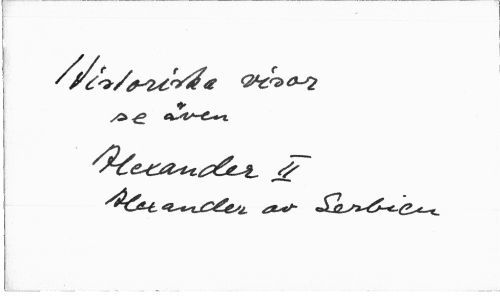 Historiska visor
se även
Alexander II
Alexander av Serbien